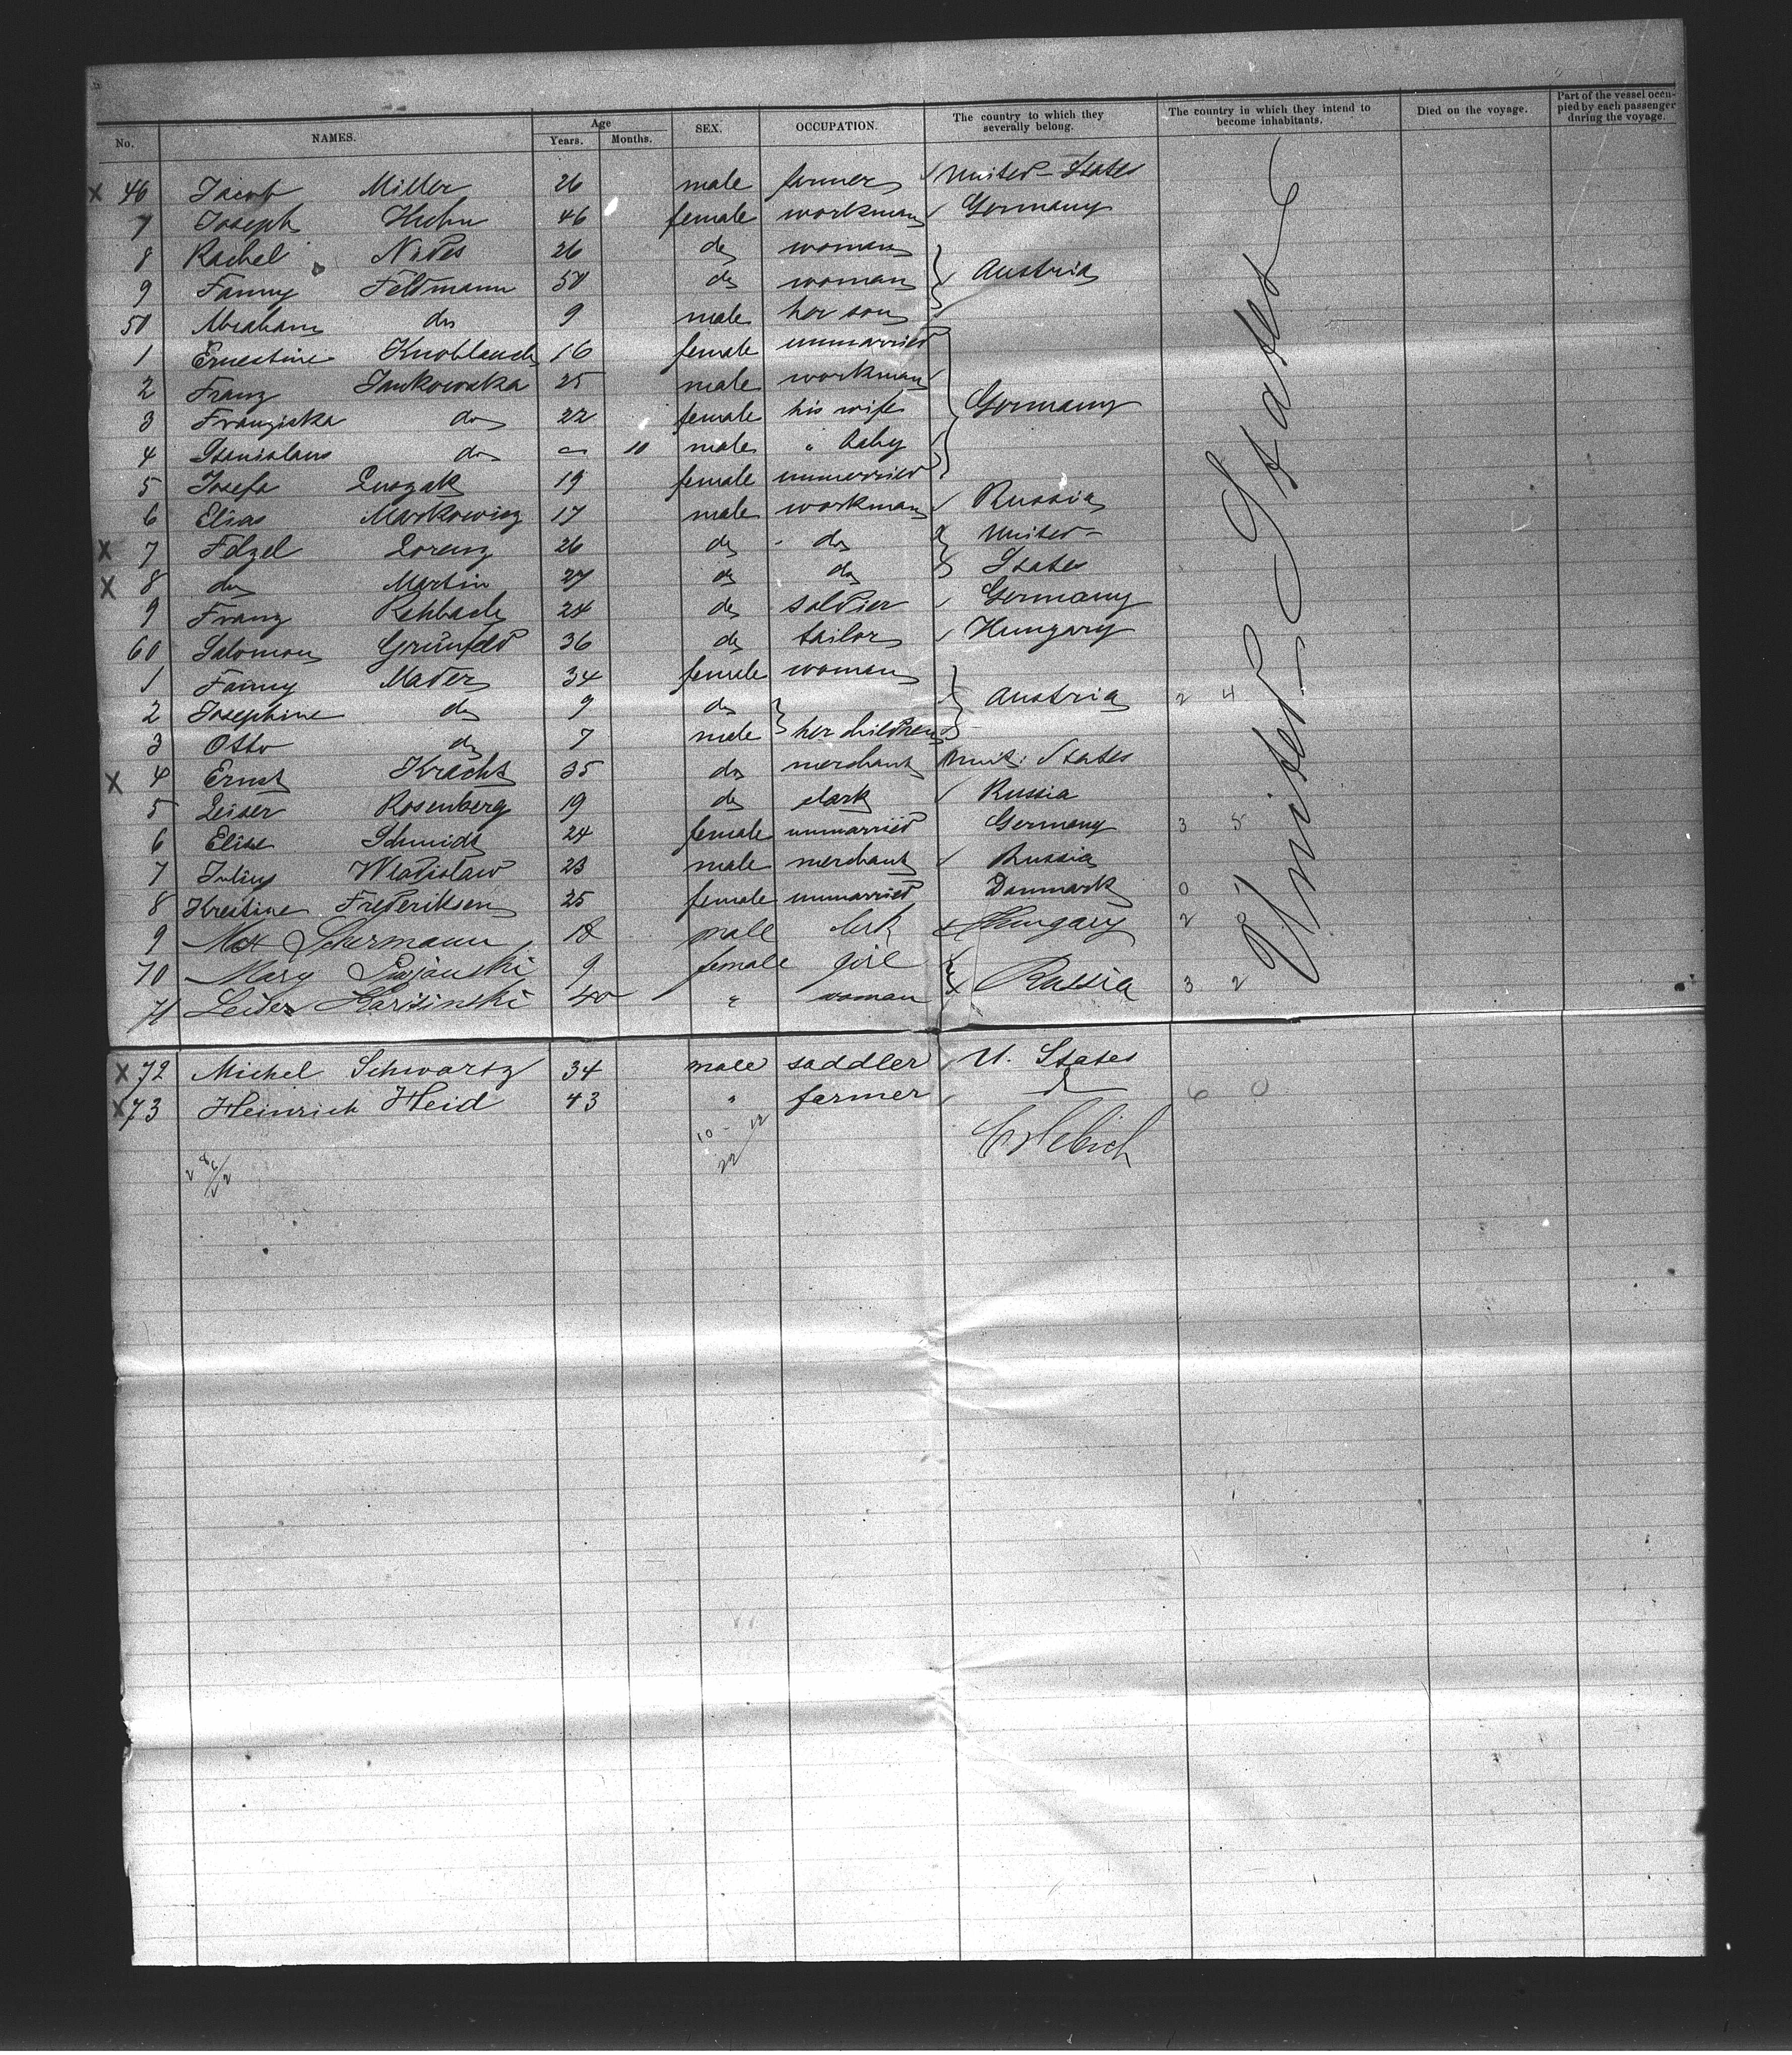 No. NAMES. Age Years. Months. SEX. OCCUPATION. The country to which they severally belong. The country in which they intend to become inhabitants. Died on the voyage. Part of the vessel occupied by each passenger during the voyage.
x 46 Jacob Miller 26 male farmer United-States
7 Joseph Huhn 46 female workman Germany
8 Rachel 26 do woman
9 Fanny Feldmann 50 do woman Austria
50 Abraham do 9 male her son
1 Ernestine Knoblauch 16 female unmarried
2 Franz Jankowska 25 male workman
3 Franziska do 22 female his wife Germany
4 Stanislaus do 10 male " baby
5 Josefa 19 female unmerried
6 Elias Markowicz 17 male workman Russia
x 7 Felzel Lorenz 26 do do United-
x 8 do Martin 27 do do States
9 Franz Rehbach 24 do soldier Germany
60 Salomon Grünfeld 36 do tailor Hungary
1 Fanny Mader 34 female woman
2 Josephine do 9 do Austria 2 4
3 Otto do 7 male her children
x 4 Ernst Kracht 35 do merchant Unit: States
5 Leiser Rosenberg 19 do clark Russia
6 Elise Schmidt 24 female unmarried Germany 3 5
7 Julius Wladislaw 23 male merchant Russia
8 Krestine Frederiksen 25 female unmarried Danmark 0 1
9 Max 18 male clerk Hungary 2 0
70 Mary 9 female girl
71 Leiser Karisinski 40 " woman Russia 3 2
x 72 Michel Schwartz 34 male saddler U. States
x 73 Heinrich Heid 43 " farmer 6 0
United States
10 - 12
22